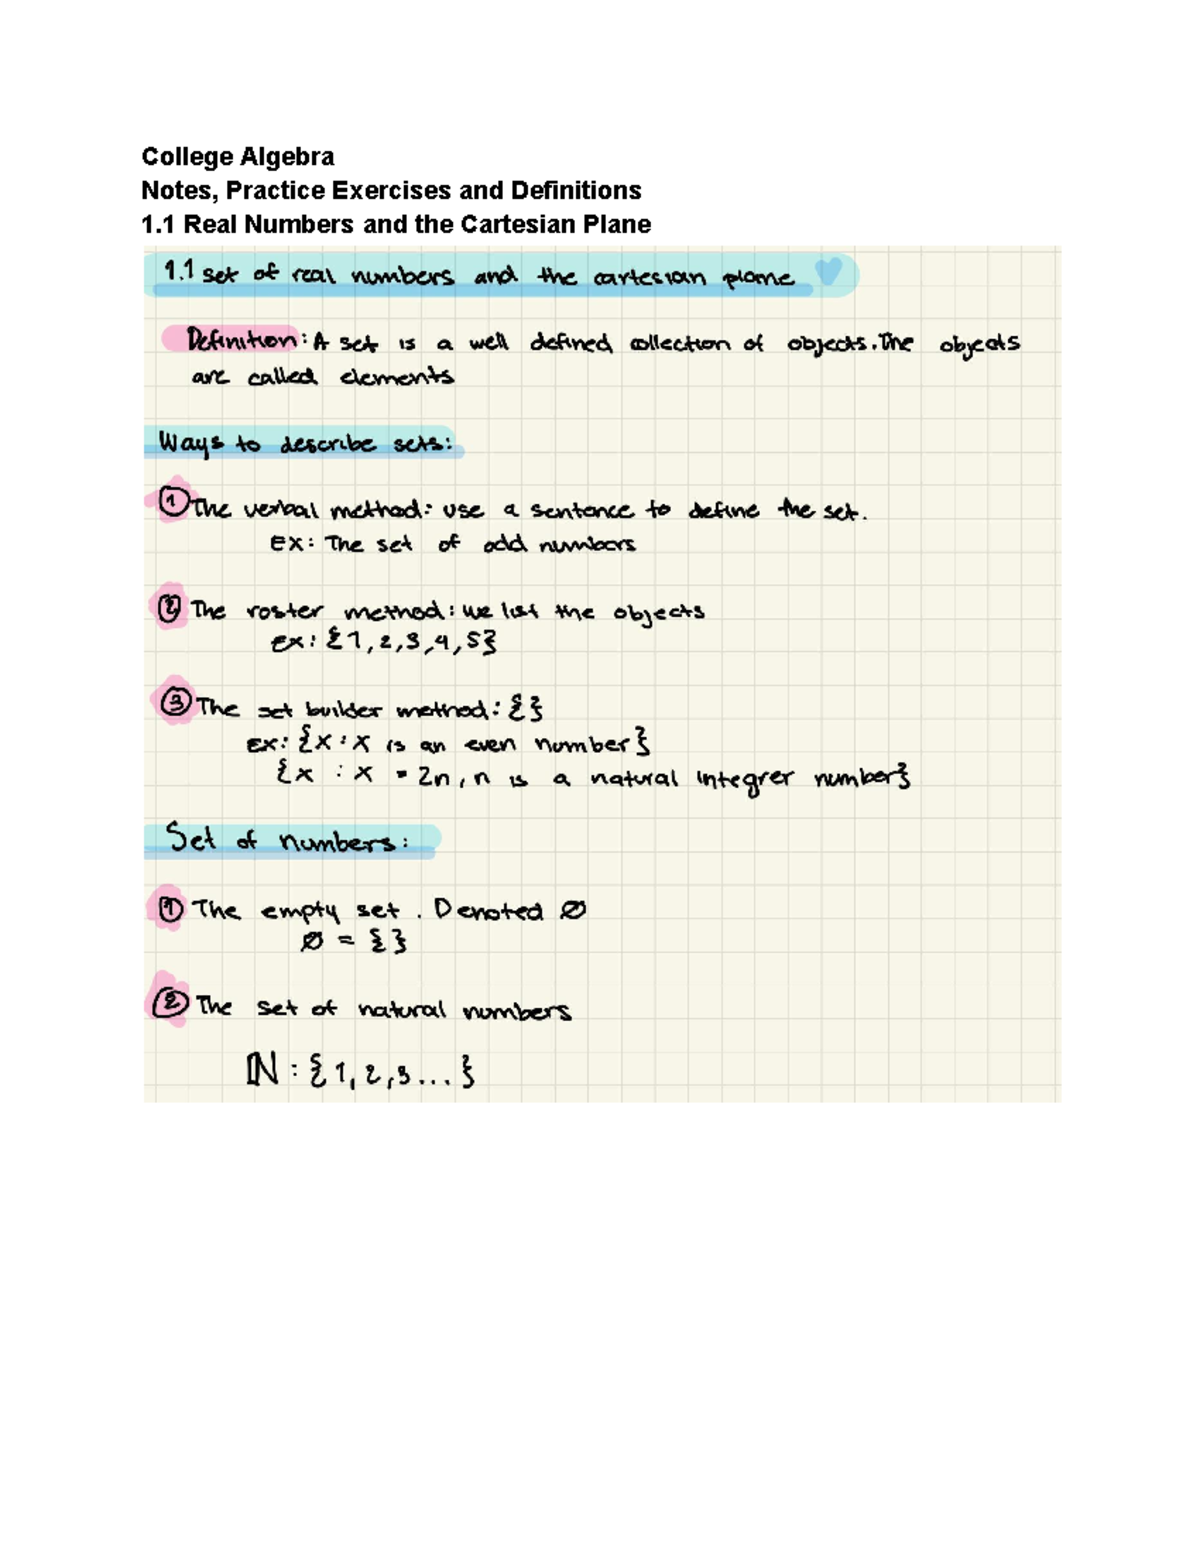 College Algebra
Notes, Practice Exercises and Definitions
1.1 Real Numbers and the Cartesian Plane
1.1 set of real numbers and the cartesian plane
Definition: A set is a well defined collection of objects. The objects
are called elements
Ways to describe sets:
① The verbal method: use a sentence to define the set.
ex: The set of odd numbers
② The roster method: we list the objects
ex: {1, 2, 3, 4, 5}
③ The set builder method: {}
Ex: {x : x is an even number}
{x : x = 2n, n is a natural integrer number}
Set of numbers:
① The empty set. Denoted ∅
∅ = {}
② The set of natural numbers
ℕ : {1, 2, 3 ... }